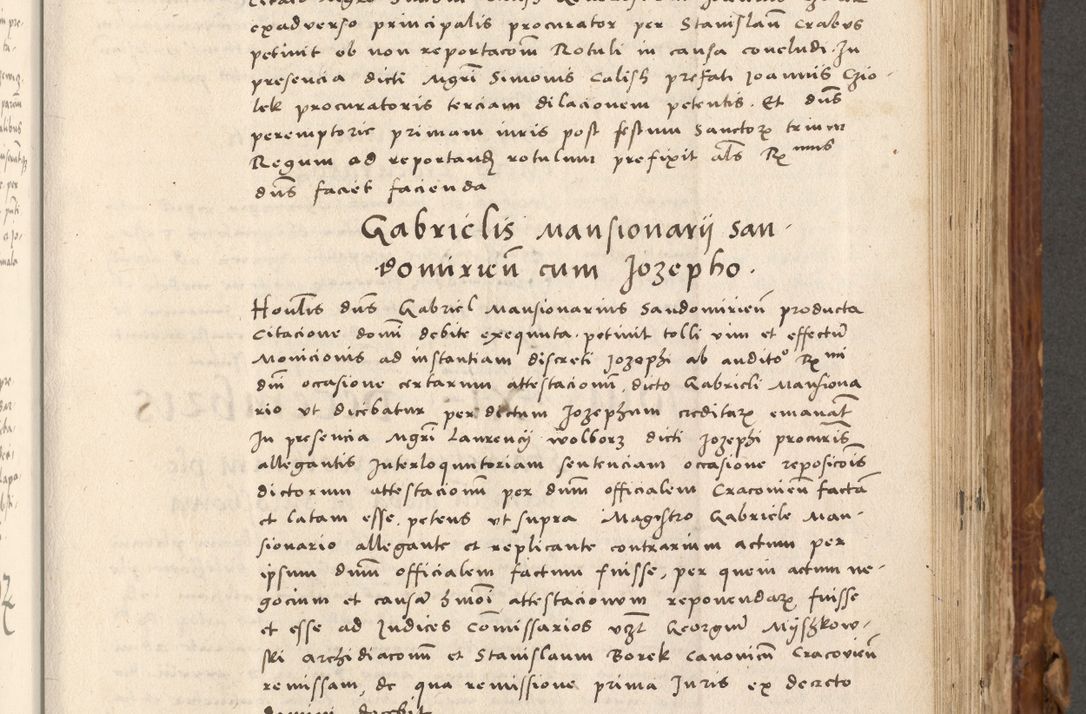 exadverso principalis procurator per Stanislaũ Crabus
petiuit ob non reportacõm Rotuli in causa concludi. In
presencia dicti Mgrĩ Simonis Calisz prefati Joannis Czio-
lek procuratoris terciam dilacionem petentis. Et dñs
peremptorie primam iuris post festum Sanctoꝝ trium
Regum ad reportandũ rotulum prefixit als Rxmus
dñs faciet facienda
Gabrielis Mansionarij San-
domirieñ cum Jozepho.
Honĩlis dñs Gabriel Mansionarius Sandomirieñ producta
Citacione domĩ debite exequuta. petiuit tolli vim et effectũ
Monicionis ad instantiam discreti Jozephi ab audito° Rxmi
dñi occasione certarum attestacionũ, dicto Gabrieli Mansiona
rio vt dicebatur per dictum Jozephum creditaꝝ emanat̃
In presencia Mgrĩ Laurencij Wolborz dicti Jozephi procuris̃
allegantis Interloquutoriam sentenciam occasione reposicõis
dictorum attestacionũ per dnũm officialem Cracovieñ factã
et latam esse, petens vt supra Magistro Gabriele Man-
sionario allegante et replicante contrarium actum per
ipsum dnũm officialem factum fuisse, per quem actum ne-
gocium et causã hmõi attestacionum reponendaꝝ, fuisse
et esse ad Iudices Comissarios vz̃t Georgiũ Myszkow-
ski archidiaconũ et Stanislaum Borek Canonicũ Cracovieñ
remissam, de qua remissione prima Iuris ex decreto